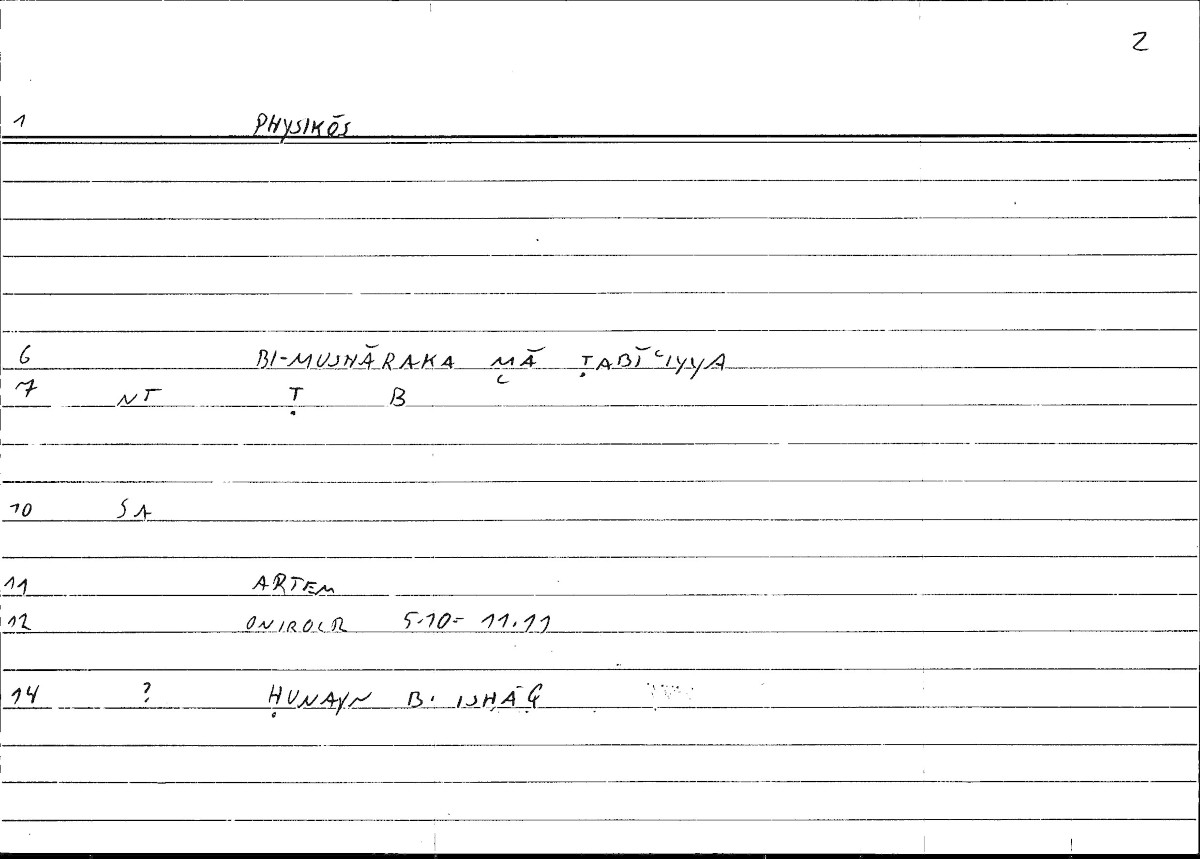 2
1 PHYSIKŌS
6 BI-MUSHĀRAKA MĀ ṬABĪʿIYYA
7 NT Ṭ B
10 SA
11 ARTEM
12 ONIROCR 5.10- 11.11
14 ? ḤUNAYN B. ISḤĀQ